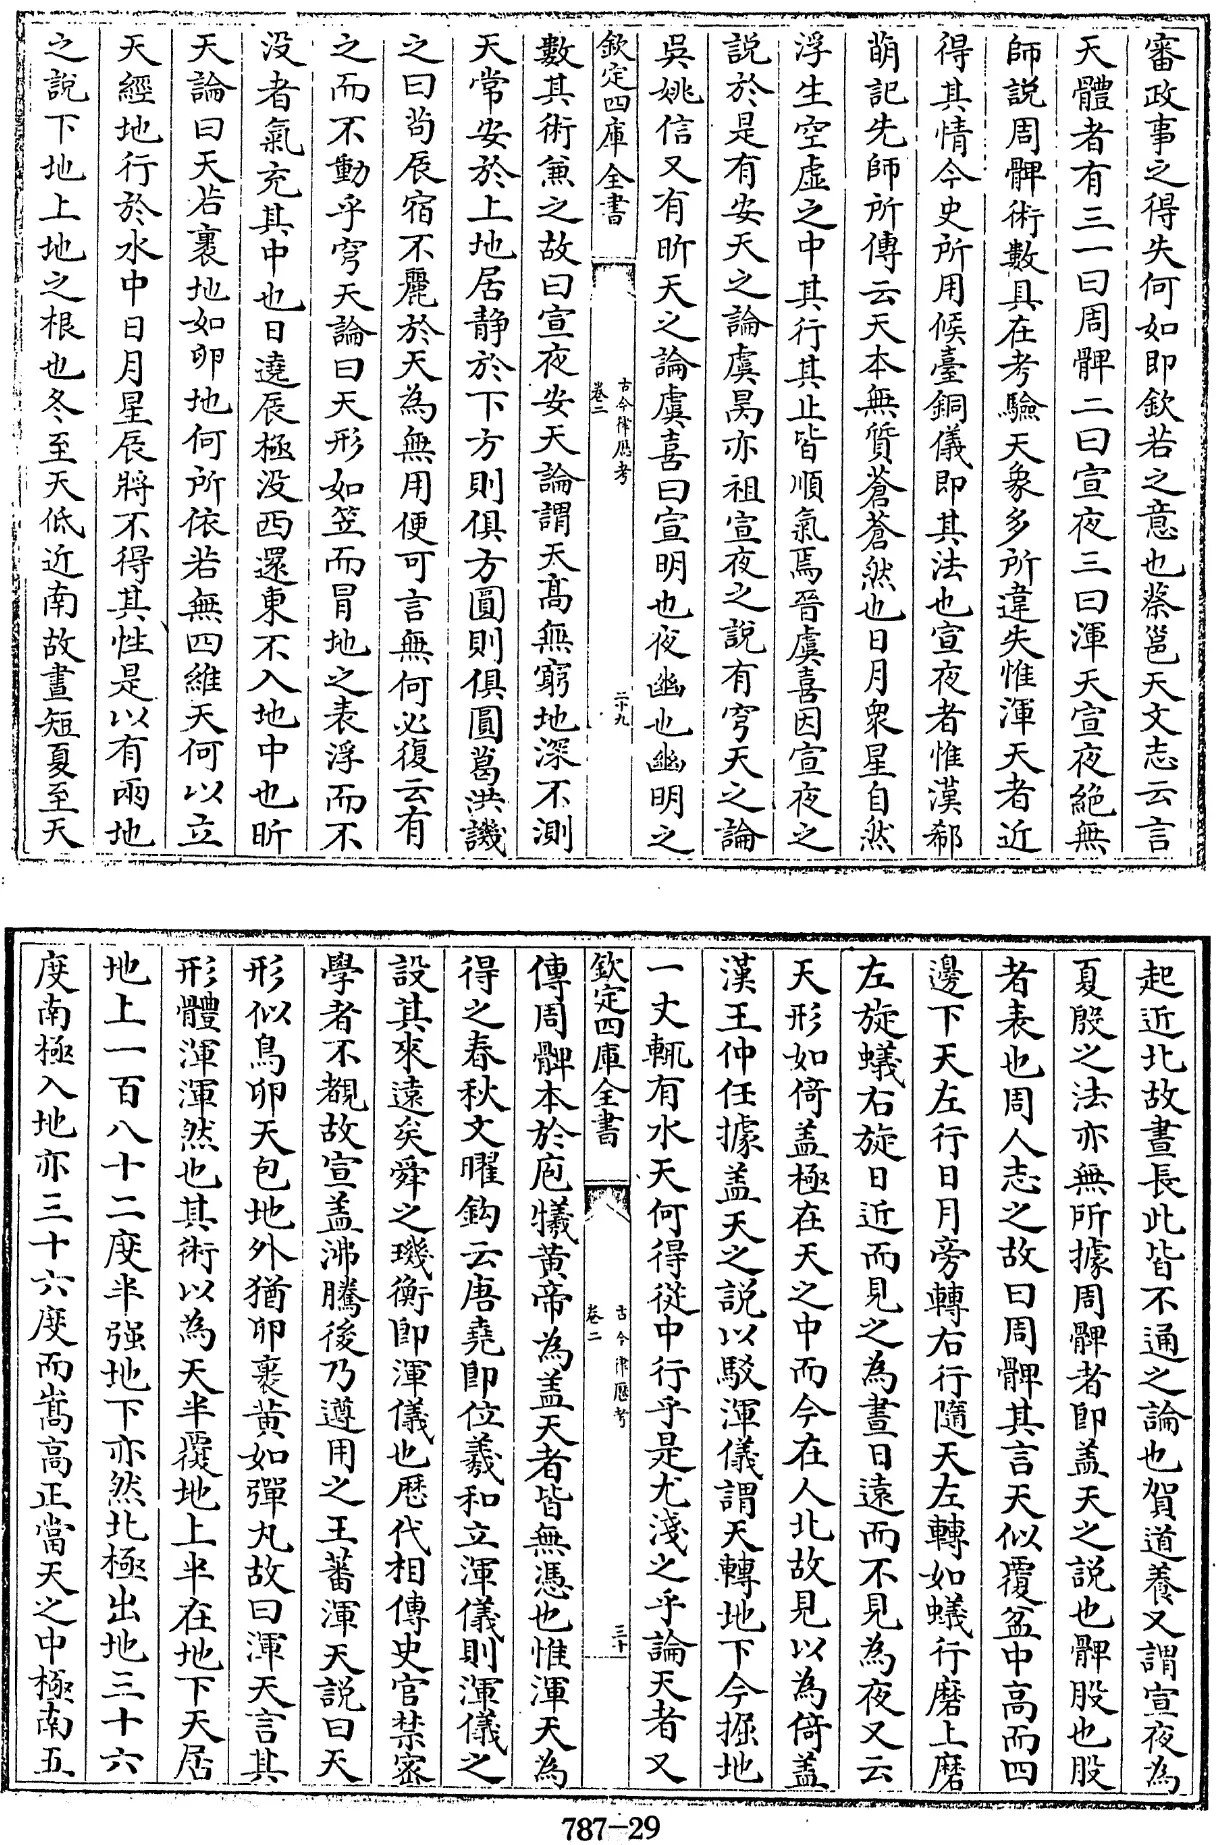 審政事之得失何如即欽若之意也蔡邕天文志云言
天體者有三一曰周髀二曰宣夜三曰渾天宣夜絶無
師説周髀術數具在考驗天象多所違失惟渾天者近
得其情今史所用候臺銅儀即其法也宣夜者惟漢郄
萌記先師所傳云天本無質蒼蒼然也日月衆星自然
浮生空虛之中其行其止皆順氣焉晉虞喜因宣夜之
説於是有安天之論虞昺亦祖宣夜之説有穹天之論
吳姚信又有昕天之論虞喜曰宣明也夜幽也幽明之
欽定四庫全書
古今律厯考
卷二
二十九
數其術兼之故曰宣夜安天論謂天髙無窮地深不測
天常安於上地居静於下方則俱方圓則俱圓葛洪譏
之曰茍辰宿不麗於天為無用便可言無何必復云有
之而不動乎穹天論曰天形如笠而冒地之表浮而不
没者氣充其中也日遶辰極没西還東不入地中也昕
天論曰天若裹地如卵地何所依若無四維天何以立
天經地行於水中日月星辰將不得其性是以有兩地
之說下地上地之根也冬至天低近南故晝短夏至天
起近北故晝長此皆不通之論也賀道養又謂宣夜為
夏殷之法亦無所據周髀者即盖天之説也髀股也股
者表也周人志之故曰周髀其言天似覆盆中高而四
邊下天左行日月旁轉右行隨天左轉如蟻行磨上磨
左旋蟻右旋日近而見之為晝日遠而不見為夜又云
天形如倚盖極在天之中而今在人北故見以為倚盖
漢王仲任據盖天之説以駁渾儀謂天轉地下今掘地
一丈輒有水天何得從中行乎是尤淺之乎論天者又
欽定四庫全書
古今律厯考
卷二
三十
傳周髀本於庖犧黄帝為盖天者皆無憑也惟渾天為
得之春秋文曜鈎云唐堯即位羲和立渾儀則渾儀之
設其來遠矣舜之璣衡即渾儀也歴代相傳史官禁密
學者不覩故宣盖沸騰後乃遵用之王蕃渾天説曰天
形似鳥卵天包地外猶卵裹黄如彈丸故曰渾天言其
形體渾渾然也其術以為天半覆地上半在地下天居
地上一百八十二度半强地下亦然北極出地三十六
度南極入地亦三十六度而嵩高正當天之中極南五
787-29